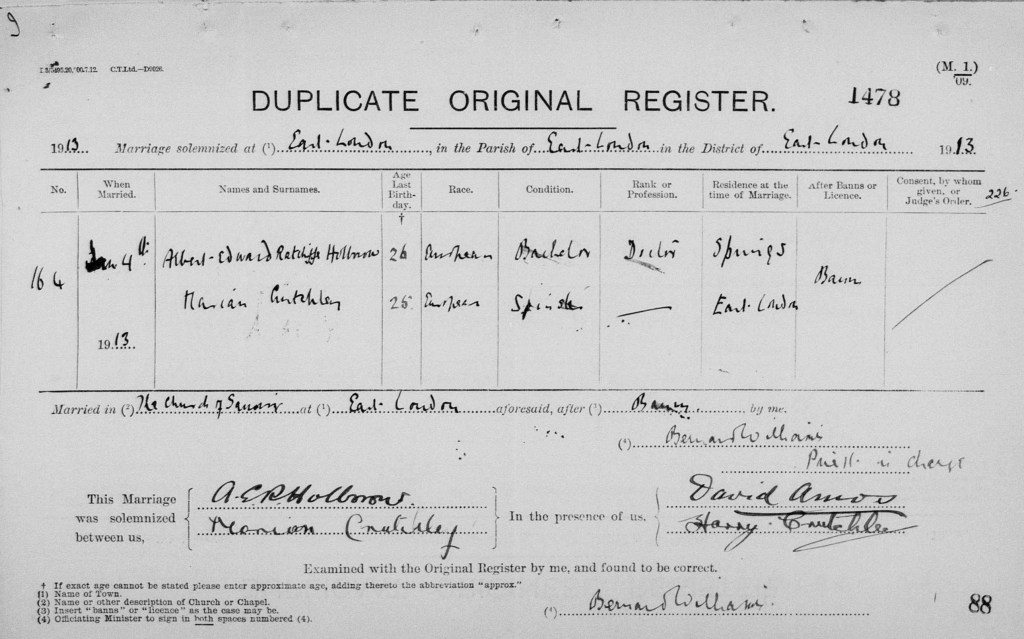 9
C.T.Ltd.—D6026.
(M. 1.)
09.
DUPLICATE ORIGINAL REGISTER.
1478
1913 Marriage solemnized at (1) East-London, in the Parish of East-London in the District of East-London 1913
No. When Married. Names and Surnames. Age Last Birthday. † Race. Condition. Rank or Profession. Residence at the time of Marriage. After Banns or Licence. Consent, by whom given, or Judge's Order. 226
164 4th Albert-Edward Ratcliffe Holbrow 26 European Bachelor Doctor Springs
Banns
Marian Crutchley 25 European Spinster — East-London
1913
Married in (2) The Church of at (1) East-London aforesaid, after (3) Banns, by me.
(4) Bernard Williams
Priest in charge
This Marriage was solemnized between us,
A.E.R. Holbrow
Marian Crutchley
In the presence of us,
David Amos
Harry Crutchley
Examined with the Original Register by me, and found to be correct.
† If exact age cannot be stated please enter approximate age, adding thereto the abbreviation "approx."
(1) Name of Town.
(2) Name or other description of Church or Chapel.
(3) Insert "banns" or "licence" as the case may be.
(4) Officiating Minister to sign in both spaces numbered (4).
(4) Bernard Williams.
88